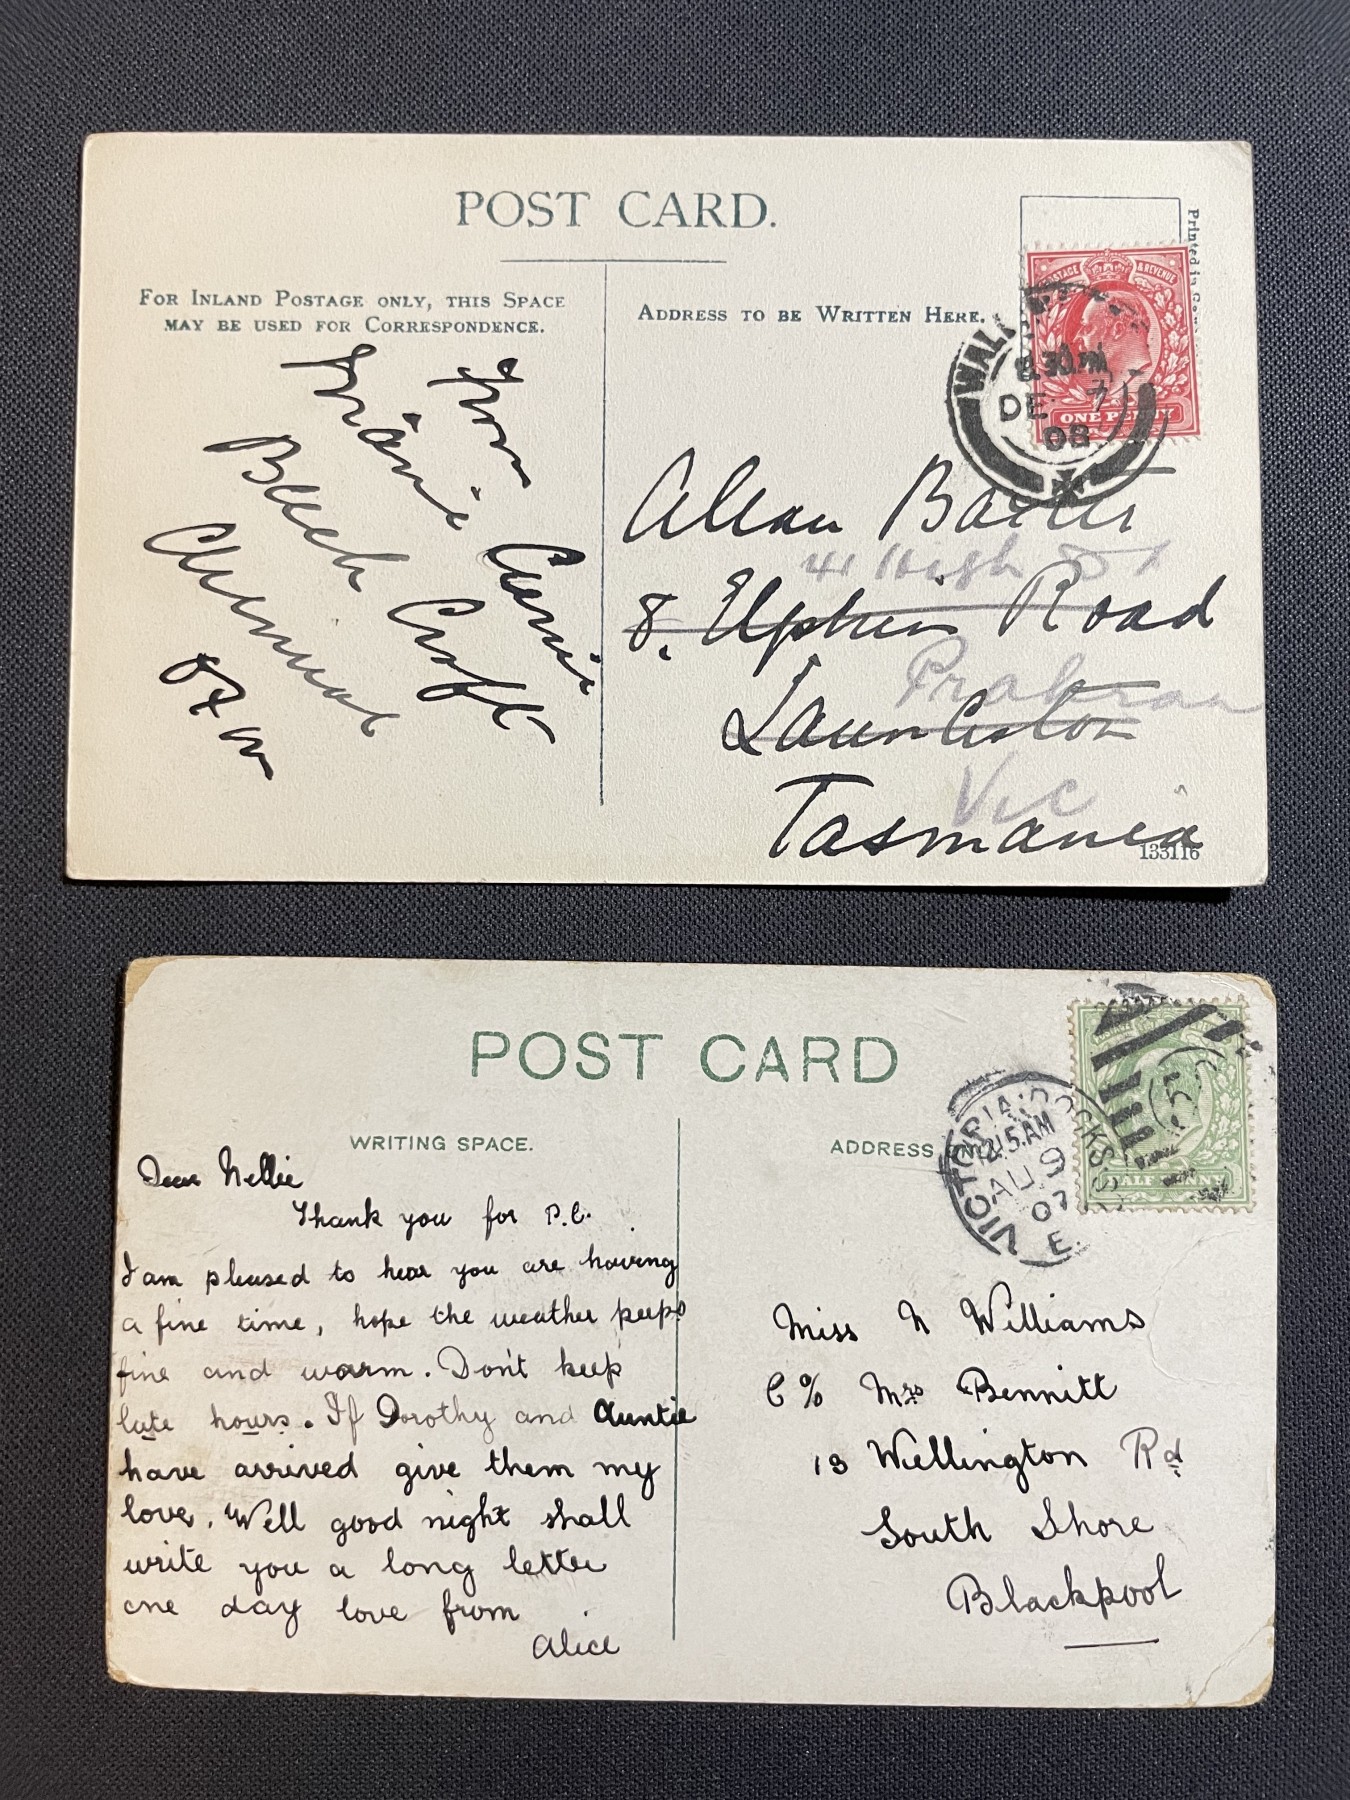 POST CARD.
FOR INLAND POSTAGE ONLY, THIS SPACE
MAY BE USED FOR CORRESPONDENCE.
ADDRESS TO BE WRITTEN HERE.
Printed in
POSTAGE & REVENUE
ONE PENNY
8.30 PM
DE 7
08
From
Carrie
Beech Croft
Alan Baxter
41 High St
8. Elphin Road
Prahran
Launceston
Vic
Tasmania
133116
POST CARD
WRITING SPACE.
ADDRESS ONLY
HALF PENNY
VICTORIA DOCKS
12.15 AM
AU 9
07
E.
Dear Nellie
Thank you for P.C.
I am pleased to hear you are having
a fine time, hope the weather keeps
fine and warm. Don't keep
late hours. If Dorothy and Auntie
have arrived give them my
love. Well good night shall
write you a long letter
one day love from
Alice
Miss N Williams
C% Mrs Bennitt
13 Wellington Rd
South Shore
Blackpool